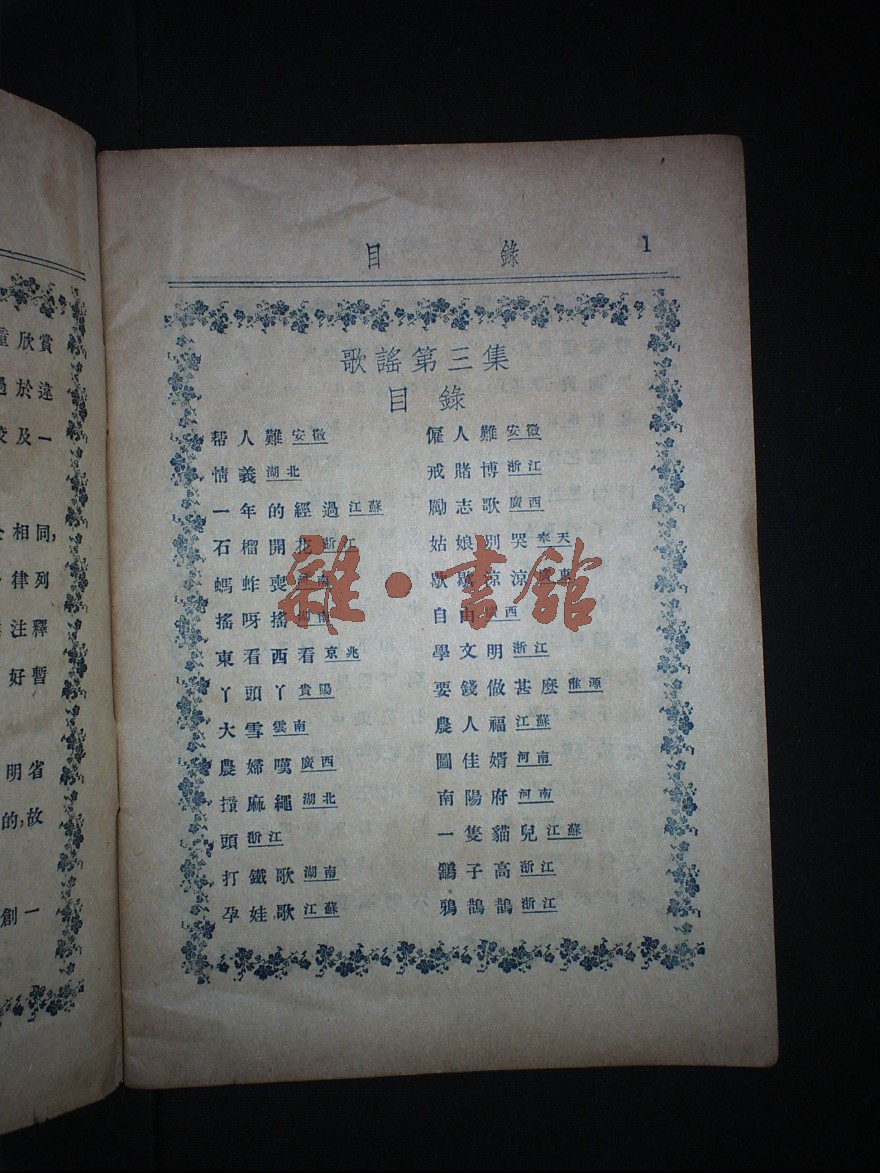 目錄 1
歌謠第三集
目錄
帮人難 安徽
情義 湖北
一年的經過 江蘇
石榴開花 浙江
螞蚱喪
搖呀搖 湖南
東看西看 京兆
丫頭丫 貴陽
大雪 雲南
農婦嘆 廣西
麻繩 湖北
頭 浙江
打鐵歌 湖南
孕娃歌 江蘇
僱人難 安徽
戒賭博 浙江
勵志歌 廣西
姑娘別哭 奉天
歇歇涼涼
自由 西
學文明 浙江
要錢做甚麼
農人福 江蘇
圖佳婿 河南
南陽府 河南
一隻貓兒 江蘇
鷂子高 浙江
鴉鵲鵲 浙江
欣賞
於遠
及一
相同,
律列
注釋
好暫
明省
的,故
創一
雜·書館